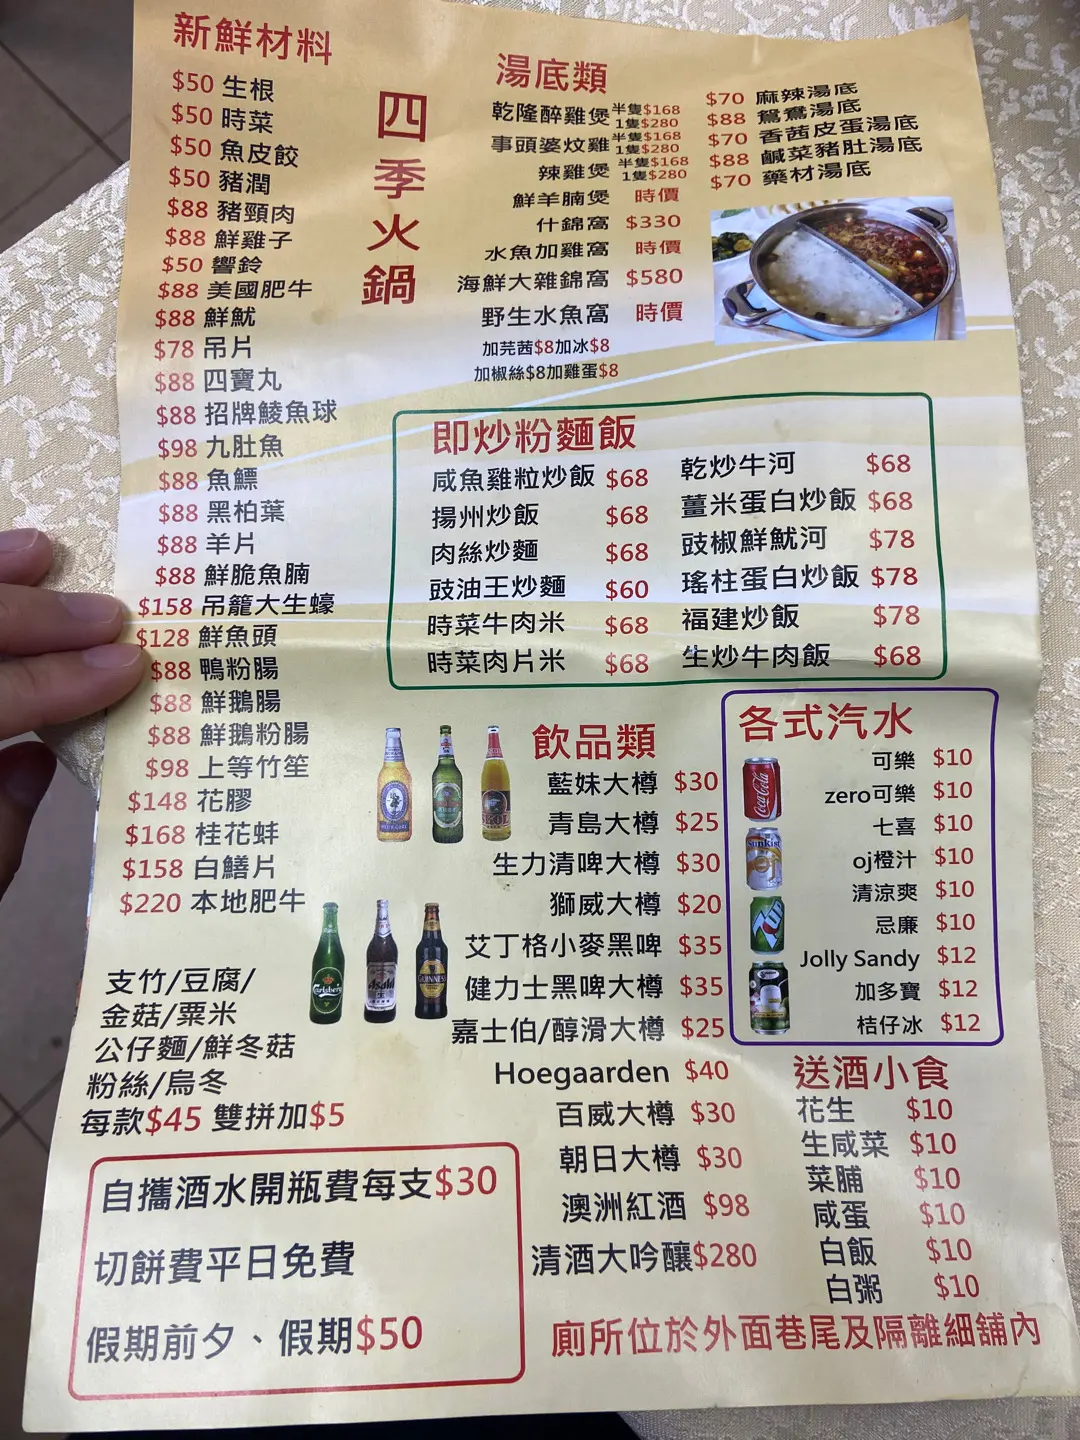 新鮮材料
$50 生根
$50 時菜
$50 魚皮餃
$50 豬潤
$88 豬頸肉
$88 鮮雞子
$50 響鈴
$88 美國肥牛
$88 鮮魷
$78 吊片
$88 四寶丸
$88 招牌鯪魚球
$98 九肚魚
$88 魚鰾
$88 黑柏葉
$88 羊片
$88 鮮脆魚腩
$158 吊籠大生蠔
$128 鮮魚頭
$88 鴨粉腸
$88 鮮鵝腸
$88 鮮鵝粉腸
$98 上等竹笙
$148 花膠
$168 桂花蚌
$158 白鱔片
$220 本地肥牛
支竹/豆腐/
金菇/粟米
公仔麵/鮮冬菇
粉絲/烏冬
每款$45 雙拼加$5
四季火鍋
湯底類
乾隆醉雞煲 半隻$168 1隻$280
事頭婆炆雞 半隻$168 1隻$280
辣雞煲 半隻$168 1隻$280
鮮羊腩煲 時價
什錦窩 $330
水魚加雞窩 時價
海鮮大雜錦窩 $580
野生水魚窩 時價
加芫茜$8加冰$8
加椒絲$8加雞蛋$8
$70 麻辣湯底
$88 鴛鴦湯底
$70 香茜皮蛋湯底
$88 鹹菜豬肚湯底
$70 藥材湯底
即炒粉麵飯
咸魚雞粒炒飯 $68
揚州炒飯 $68
肉絲炒麵 $68
豉油王炒麵 $60
時菜牛肉米 $68
時菜肉片米 $68
乾炒牛河 $68
薑米蛋白炒飯 $68
豉椒鮮魷河 $78
瑤柱蛋白炒飯 $78
福建炒飯 $78
生炒牛肉飯 $68
飲品類
藍妹大樽 $30
青島大樽 $25
生力清啤大樽 $30
獅威大樽 $20
艾丁格小麥黑啤 $35
健力士黑啤大樽 $35
嘉士伯/醇滑大樽 $25
Hoegaarden $40
百威大樽 $30
朝日大樽 $30
澳洲紅酒 $98
清酒大吟釀$280
SKOL
Carlsberg
Asahi
GUINNESS
各式汽水
可樂 $10
zero可樂 $10
七喜 $10
oj橙汁 $10
清涼爽 $10
忌廉 $10
Jolly Sandy $12
加多寶 $12
桔仔冰 $12
Coca-Cola
Sunkist
7UP
送酒小食
花生 $10
生咸菜 $10
菜脯 $10
咸蛋 $10
白飯 $10
白粥 $10
自攜酒水開瓶費每支$30
切餅費平日免費
假期前夕、假期$50
廁所位於外面巷尾及隔離細舖內